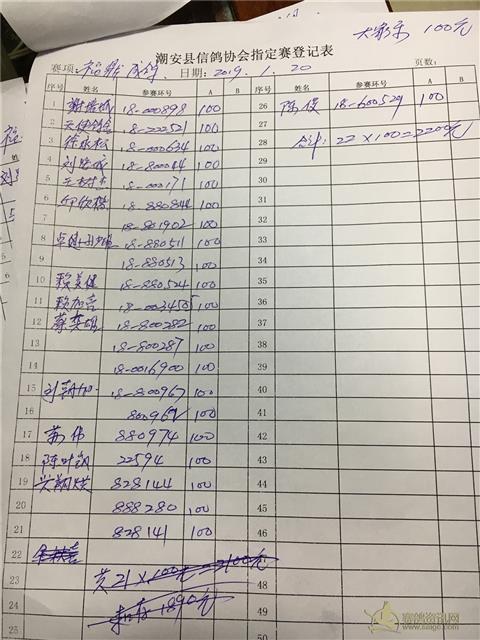 大家乐 100元
潮安县信鸽协会指定赛登记表
赛项: 福鼎 成鸽 日期: 2019.1.20 页数:
序号 姓名 参赛环号 A B 序号 姓名 参赛环号 A B
1 18-000898 100 26 陈俊 18-600529 100
2 天使鸽舍 18-222521 100 27
3 徐永松 18-000634 100 28 合计: 22×100=2200元
4 18-800044 100 29
5 18-000171 100 30
6 18-880844 100 31
7 18-801902 100 32
8 18-880511 100 33
9 18-880513 100 34
10 赖美健 18-880524 100 35
11 赖加喜 18-0034505 100 36
12 蔡奕雄 18-800282 100 37
13 18-800287 100 38
14 18-0016900 100 39
15 18-800967 100 40
16 800962 100 41
17 苏伟 880974 100 42
18 陈叶钏 22594 100 43
19 828144 100 44
20 888280 100 45
21 828141 100 46
22 47
23 共21×100元=2100元 48
24 扣存1890元 49
25 50
赛鸽资讯网
www.saige.com